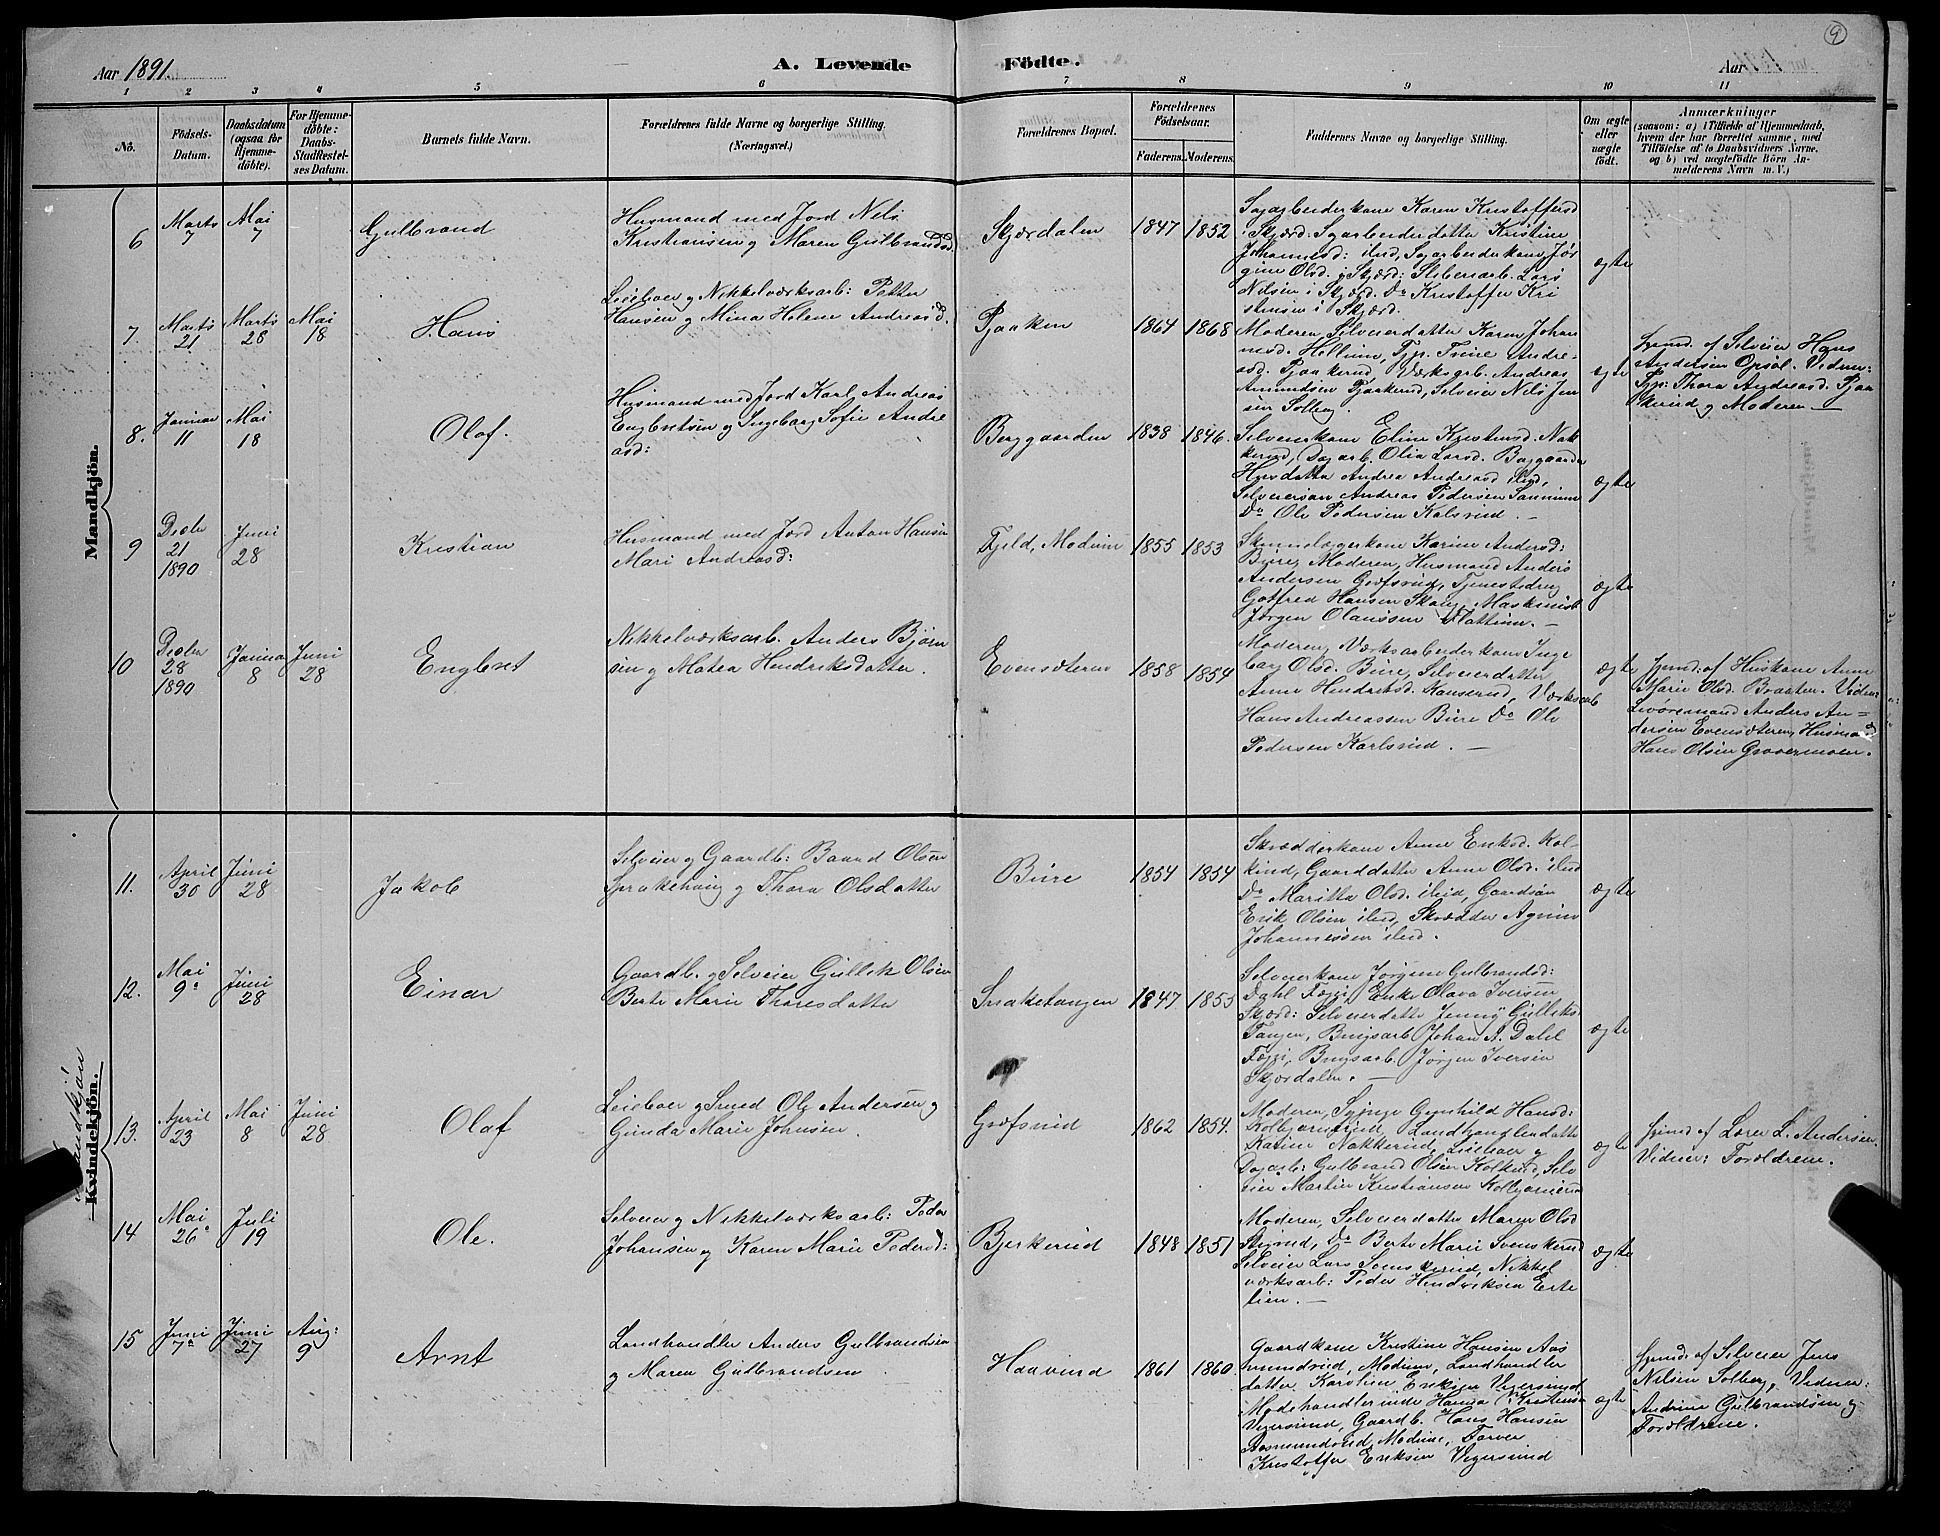 9
Aar 1891.
A. Levende Födte.
Aar
1 2 3 4 5 6 7 8 9 10 11
No.
Födsels-
Datum.
Daabsdatum
(ogsaa for
Hjemme-
döbte).
For Hjemme-
döbte:
Daabs-
Stadfestel-
ses Datum.
Barnets fulde Navn.
Forældrenes fulde Navne og borgerlige Stilling.
(Næringsvei.)
Forældrenes Bopæl.
Forældrenes
Födselsaar.
Faderens. Moderens.
Faddernes Navne og borgerlige Stilling.
Om ægte
eller
uægte
født.
Anmærkninger
(saasom: a) i Tilfælde af Hjemmedaab,
hvem der har forrettet samme, med
Tilföielse af to Daabsvidners Navne.
og b) ved uægtefödte Börn An-
melderens Navn m. V.)
Mandkjön.
6
Marts
7
Mai
7
Gulbrand
Husmand med Jord Nels
Kristiansen og Maren Gulbrandsd
Skjærdalen
1847 1852
Sagarbeiderkone Karen Kristoffersd
i Skjærd: Sagarbeiderdatter Kristine
Johannesd: ibid, Sagarbeiderkone Jør
gine Olsd. i Skjærd: Sliberiarb. Lars
Nilsen i Skjærd. Do Kristoffer Kri
stensen i Skjærd.
ægte
7.
Marts
21
Marts
28
Mai
18
Hans
Leieboer og Nikkelværksarb: Petter
Hansen og Mina Helene Andreasd.
Pjaaken
1864 1868
Moderen, Selveierdatter Karen Johan
nesd. Hellum, Tjp. Trine Andre-
asd. Pjaakerud, Værksarb. Andreas
Amundsen Pjaakerud, Selveier Nils Jen
sen Solberg.
ægte
Hjemd. af Selveier Hans
Andersen Opsal. Vidner:
Tjp: Thora Andreasd. Pjaa
kerud og Moderen —
8.
Januar
11
Mai
18
Olaf.
Husmand med Jord Karl Andreas
Engbretsen og Ingeborg Sofie Andre
asd:
Berggaarden
1838 1846.
Selveierkone Eline Kristensd. Nak
kerud, Dagarb. Olia Larsd. Berggaarden
Husdatter Andrea Andreasd ibid,
Selveiersøn Andreas Pedersen
Do Ole Pedersen Kalsrud. —
ægte
9
Decbr
21
1890
Juni
28
Kristian
Husmand med Jord Anton Hansen
Mari Andreasd:
Fjeld, Modum
1855 1853
Karine Andersd:
Bure, Moderen, Husmand Anders
Andersen Grøfsrud, Tjenestedreng
Gotfred Hansen Skaug, Maskinist
Jørgen Olaussen —
ægte
10
Decbr
28
1890
Januar
8
Juni
28
Engbret
Nikkelværksarb. Anders Bjørn
sen og Matea Hendriksdatter.
Evensæteren
1858 1854
Moderen, Værksarbeiderkone Inge
borg Olsd. Bure, Selveierdatter
Anne Hendriksd. Kanserud, Værksarb
Hans Andreassen Bure Do Ole
Pedersen Karlsrud. —
ægte
Hjemd: af Huskone Anne
Marie Olsd. Braaten. Vidn:
Anders An-
dersen Evensæteren, Husmand
Hans Olsen Grovermoen.
Mandkjön
Kvindekjön.
11.
April
30
Juni
28
Jakob
Selveier og Gaardb: Baard Olsen
Sprakehaug og Thora Olsdatter
Bure
1854 1854
Skrædderkone Anne Eriksd. Kol-
kind, Gaarddatter Anne Olsd. ibid
Do Maritta Olsd. ibid, Gaardsøn
Erik Olsen ibid, Skrædder
Johannessen ibid.
ægte
12.
Mai
9
Juni
28
Einar
Gaardb. og Selveier Gullik Olsen
Berte Marie Thoresdatter
Snaketangen
1847 1855
Selveierkone Jørgine Gulbrandsd:
Dahl Fægri, Enke Olava Iversen
Skjærd: Selveierdatter Jenny Gulliks
Tangen, Brugsarb. Johan A. Dahl
Fægri, Brugsarb. Jørgen Iversen
Skjærdalen. —
ægte
13.
April
23
Mai
8
Juni
28
Olaf
Leieboer og Smed Ole Andersen og
Gunda Marie Johnsen.
Grøfsrud
1862 1854.
Moderen, Sypige Gunhild Hansd:
Kolbjørnsrud, Landhandlerdatter
Katine Nakkerud, Leieboer og
Dagarb: Gulbrand Olsen Kolkind, Selv
eier Martin Kristiansen Kolbjørnsrud
ægte
Hjemd. af Lærer L. Andersen.
Vidner: Forældrene.
14
Mai
26
Juli
19
Ole.
Selveier og Nikkelværksarb: Peder
Johansen og Karen Marie Pedersd:
Bjerkerud
1848 1851
Moderen, Selveierdatter Maren Olsd
Do Berte Marie Svenskerud
Selveier Lars Svenskerud, Nikkel
værksarb: Peder Hendriksen Erte
lien. —
ægte
15
Juni
7
Juni
27
Aug:
9
Arnt
Landhandler Anders Gulbrandsen
og Maren Gulbrandsen.
Haavrud
1861 1860.
Gaardkone Kristine Hansen Aas
mundrud, Modum, Landhandler
datter Karoline Eriksen Vegersrud
Modehandlerinde Hanna Kristensen
Vegersrud, Gaardb. Hans Hansen
Aasmundrud Modum, Farver
Kristoffer Eriksen Vegersrud
ægte
Hjemd. af Selveier Jens
Nilsen Solberg, Vidner:
Andrine Gulbrandsen og
Forældrene.